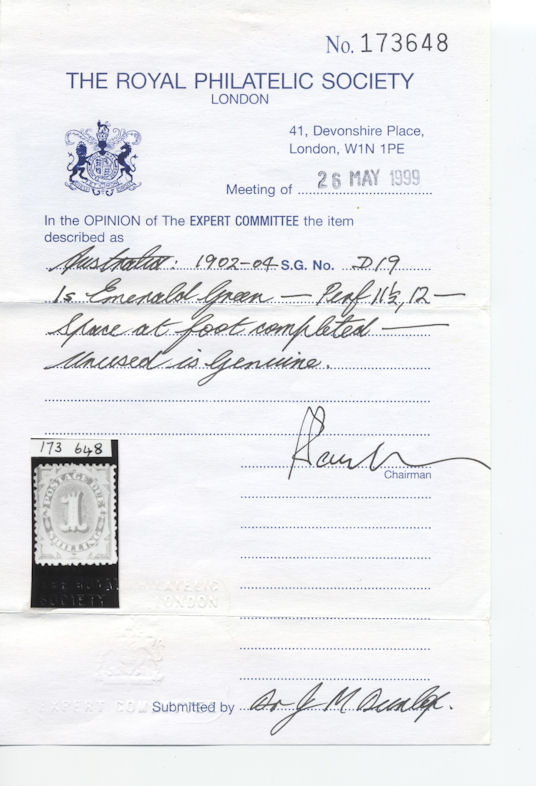 No. 173648
THE ROYAL PHILATELIC SOCIETY
LONDON
41, Devonshire Place,
London, W1N 1PE
Meeting of 26 MAY 1999
In the OPINION of The EXPERT COMMITTEE the item
described as
Australia: 1902-04 S.G. No. D19
1s Emerald Green — Perf 11½, 12 —
Space at foot completed —
Unused is Genuine.
Chairman
173 648
POSTAGE DUE
1
SHILLING
THE ROYAL PHILATELIC
SOCIETY LONDON
EXPERT COMMITTEE
Submitted by Dr J M Dunlop.